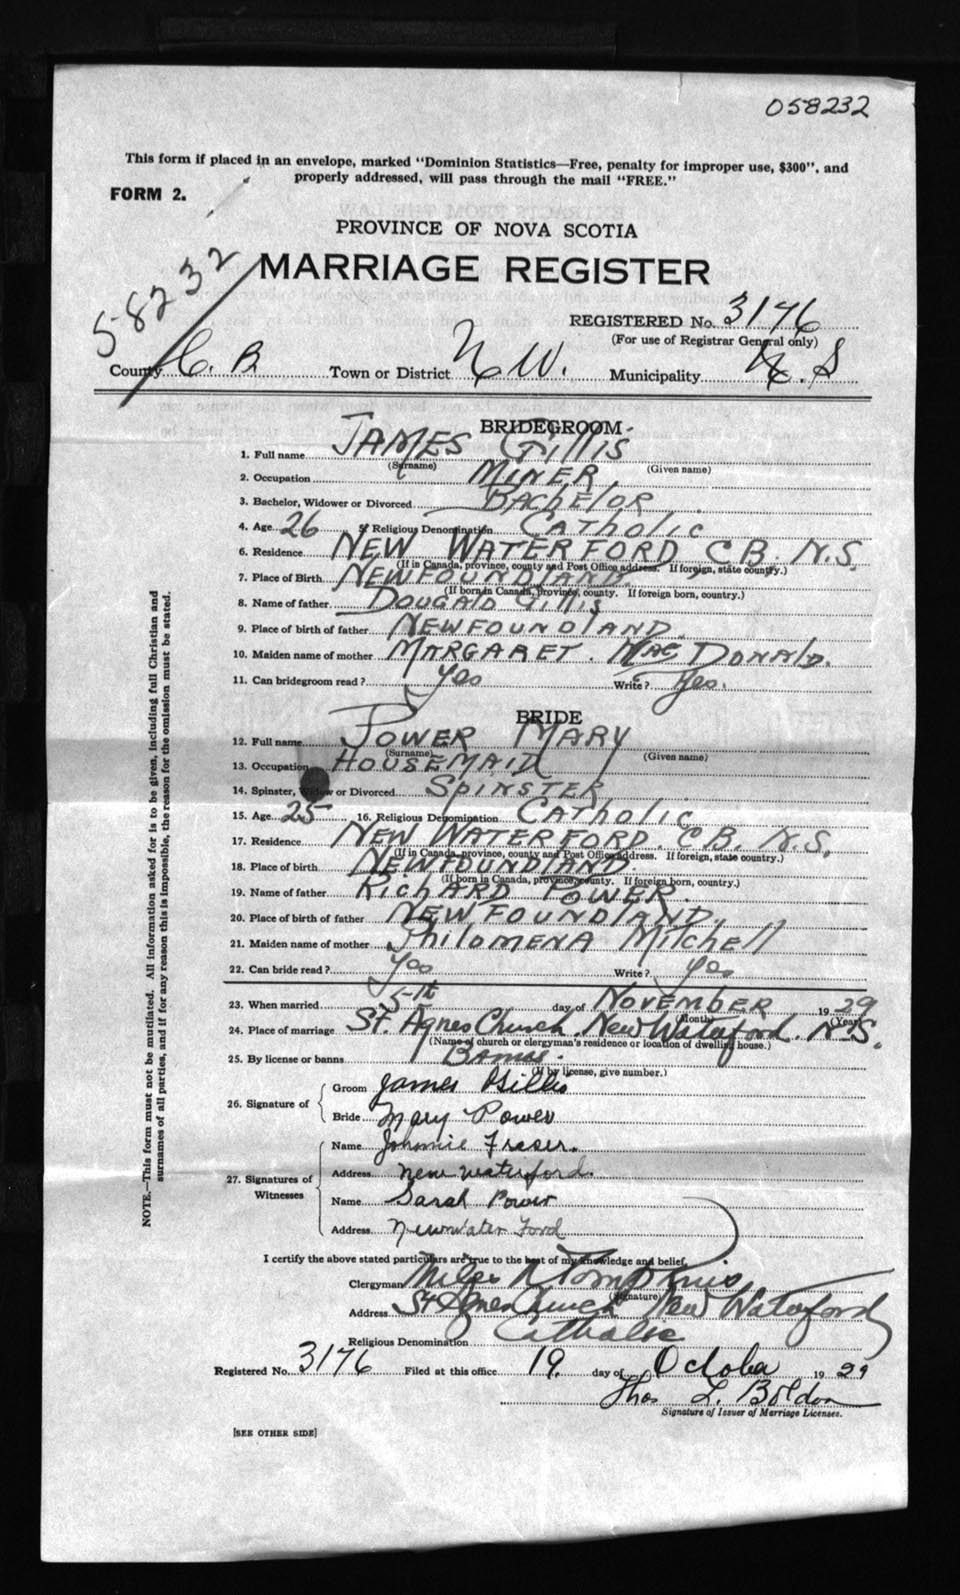 058232
This form if placed in an envelope, marked "Dominion Statistics—Free, penalty for improper use, $300", and
properly addressed, will pass through the mail "FREE."
FORM 2.
PROVINCE OF NOVA SCOTIA
58232
MARRIAGE REGISTER
REGISTERED No. 3176
(For use of Registrar General only)
County C. B Town or District N W. Municipality N. S
BRIDEGROOM
1. Full name JAMES Gillis
(Surname) (Given name)
2. Occupation MINER
3. Bachelor, Widower or Divorced BAChElOR
4. Age 26 5. Religious Denomination CATholic
6. Residence NEW WATERFORD C.B. N.S.
(If in Canada, province, county and Post Office address. If foreign, state country.)
7. Place of Birth NEWFOUNDlAND.
(If born in Canada, province, county. If foreign born, country.)
8. Name of father DOUGAlD Gillis
9. Place of birth of father NEWFOUNDlAND
10. Maiden name of mother MARGARET. MAC DONAlD.
11. Can bridegroom read? Yes Write? Yes.
BRIDE
12. Full name POWER MARY
(Surname) (Given name)
13. Occupation HOUSEMAID
14. Spinster, Widow or Divorced SpiNSTER
15. Age 25 16. Religious Denomination CATholic
17. Residence NEW WATERFORD. C.B. N.S.
(If in Canada, province, county and Post Office address. If foreign, state country.)
18. Place of birth NEWFOUNDlAND
(If born in Canada, province, county. If foreign born, country.)
19. Name of father RichARD POWER.
20. Place of birth of father NEWFOUNDlAND.
21. Maiden name of mother PhilOMENA Mitchell
22. Can bride read? Yes Write? Yes
23. When married 5th day of NOVEMBER 1929
(Month) (Year)
24. Place of marriage St. Agnes Church. New Waterford. N.S.
(Name of church or clergyman's residence or location of dwelling house.)
25. By license or banns Banns.
(If by license, give number.)
26. Signature of
Groom James Gillis
Bride Mary Power
27. Signatures of Witnesses
Name Johnnie Fraser.
Address New Waterford.
Name Sarah Power
Address New Water Ford
I certify the above stated particulars are true to the best of my knowledge and belief,
Clergyman Miles N Tompkins
(Signature)
Address St Agnes Church New Waterford
Religious Denomination Catholic
Registered No. 3176 Filed at this office 19. day of October 1929
Thos L. Boldon
Signature of Issuer of Marriage Licenses.
[SEE OTHER SIDE]
NOTE.—This form must not be mutilated. All information asked for is to be given, including full Christian and
surnames of all parties, and if for any reason this is impossible, the reason for the omission must be stated.